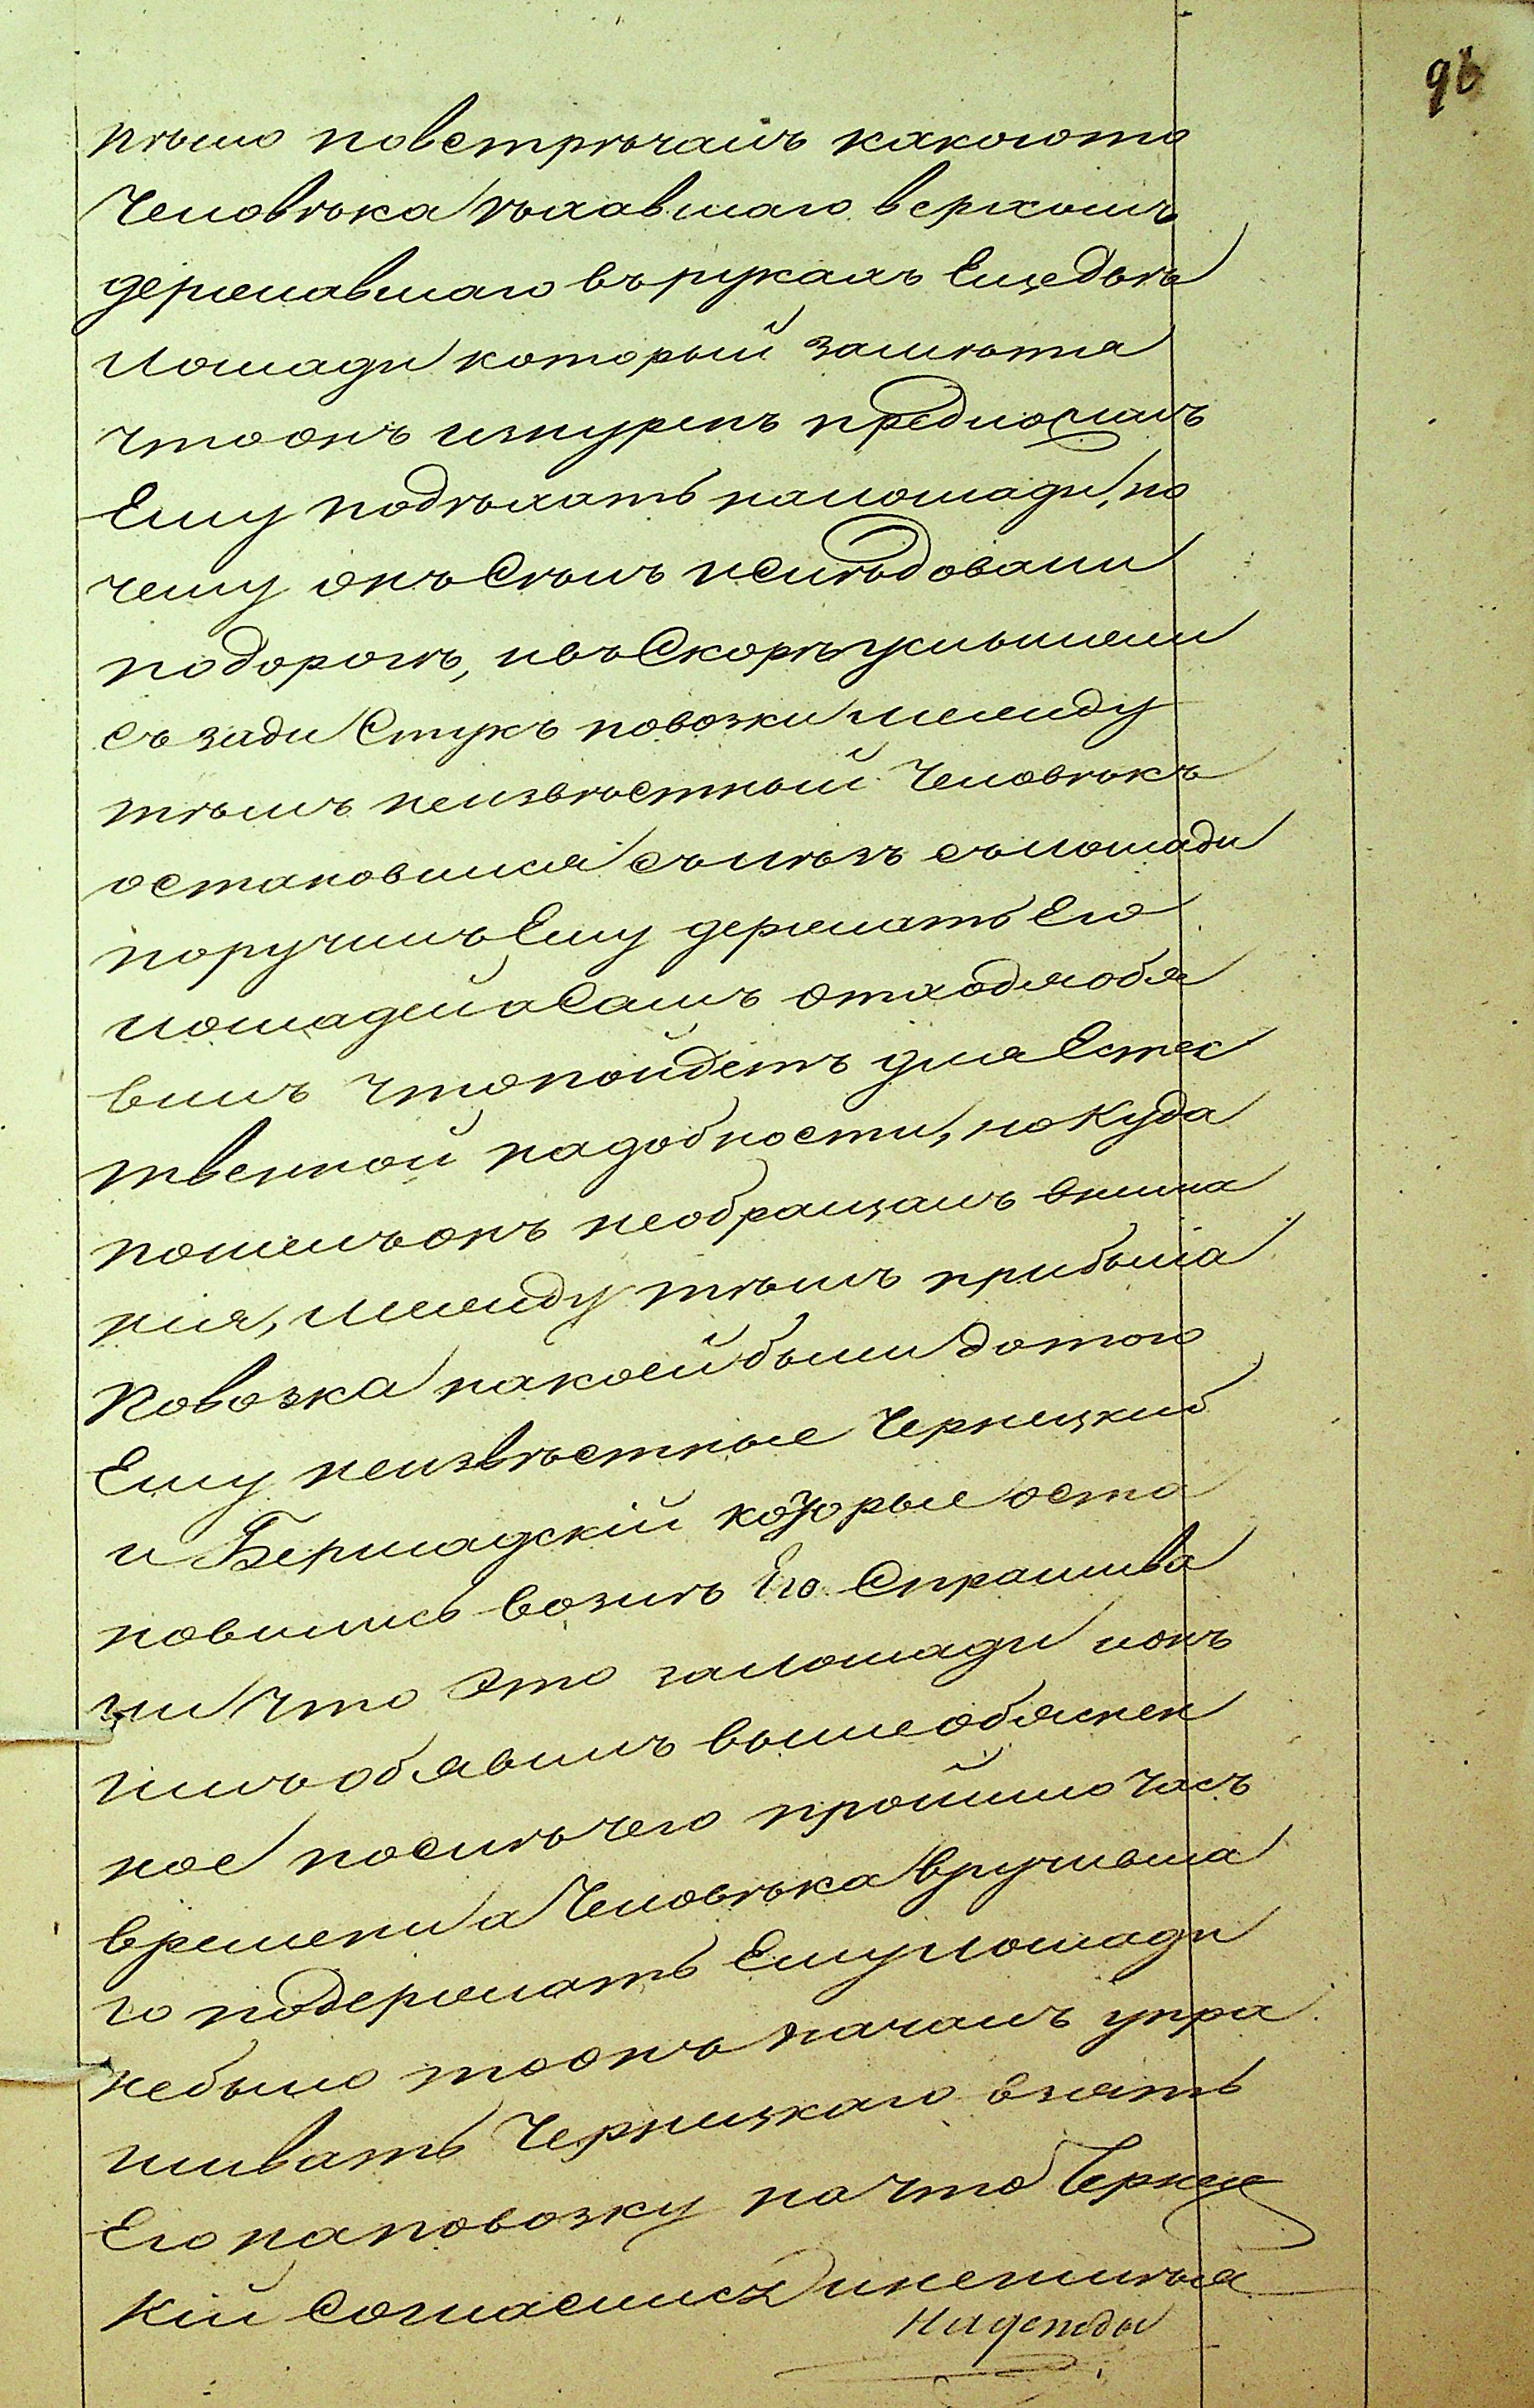 96
пѣшо повстрѣчалъ какогото
Человѣка ѣхавшаго верхомъ
державшаго въ рукахъ Еще двѣ
лошади который замѣтя
что онъ изнуренъ предложилъ
Ему подъѣхать на лошади, по
чему онъ Сѣлъ и Слѣдовали
по дорогѣ, ивъ Скорѣ услышали
съ зади Стукъ повозки между
тѣмъ неизвѣстный Человѣкъ
остановился слѣзъ съ лошади
поручилъ Ему держать Его
лошадей а Самъ отходя обя
вилъ что пойдетъ для Естес
твенной надобности, но Куда
пошелъ онъ необращалъ внима
нія, между тѣмъ прибыла
Повозка на коей были до того
Ему неизвѣстные Чернецкій
и Бершадскій которые оста
новились возлѣ Его Спрашива
ли что это за лошади и онъ
имъ обявилъ вышеобяснен
ное послѣ чего пройшло часъ
времени а Человѣка вручивша
го подержать Ему лошади
небыло то онъ началъ упра
шивать Чернецкаго взять
Его на повозку на что Чернец
кій Согласился инетилѣя
Надежды